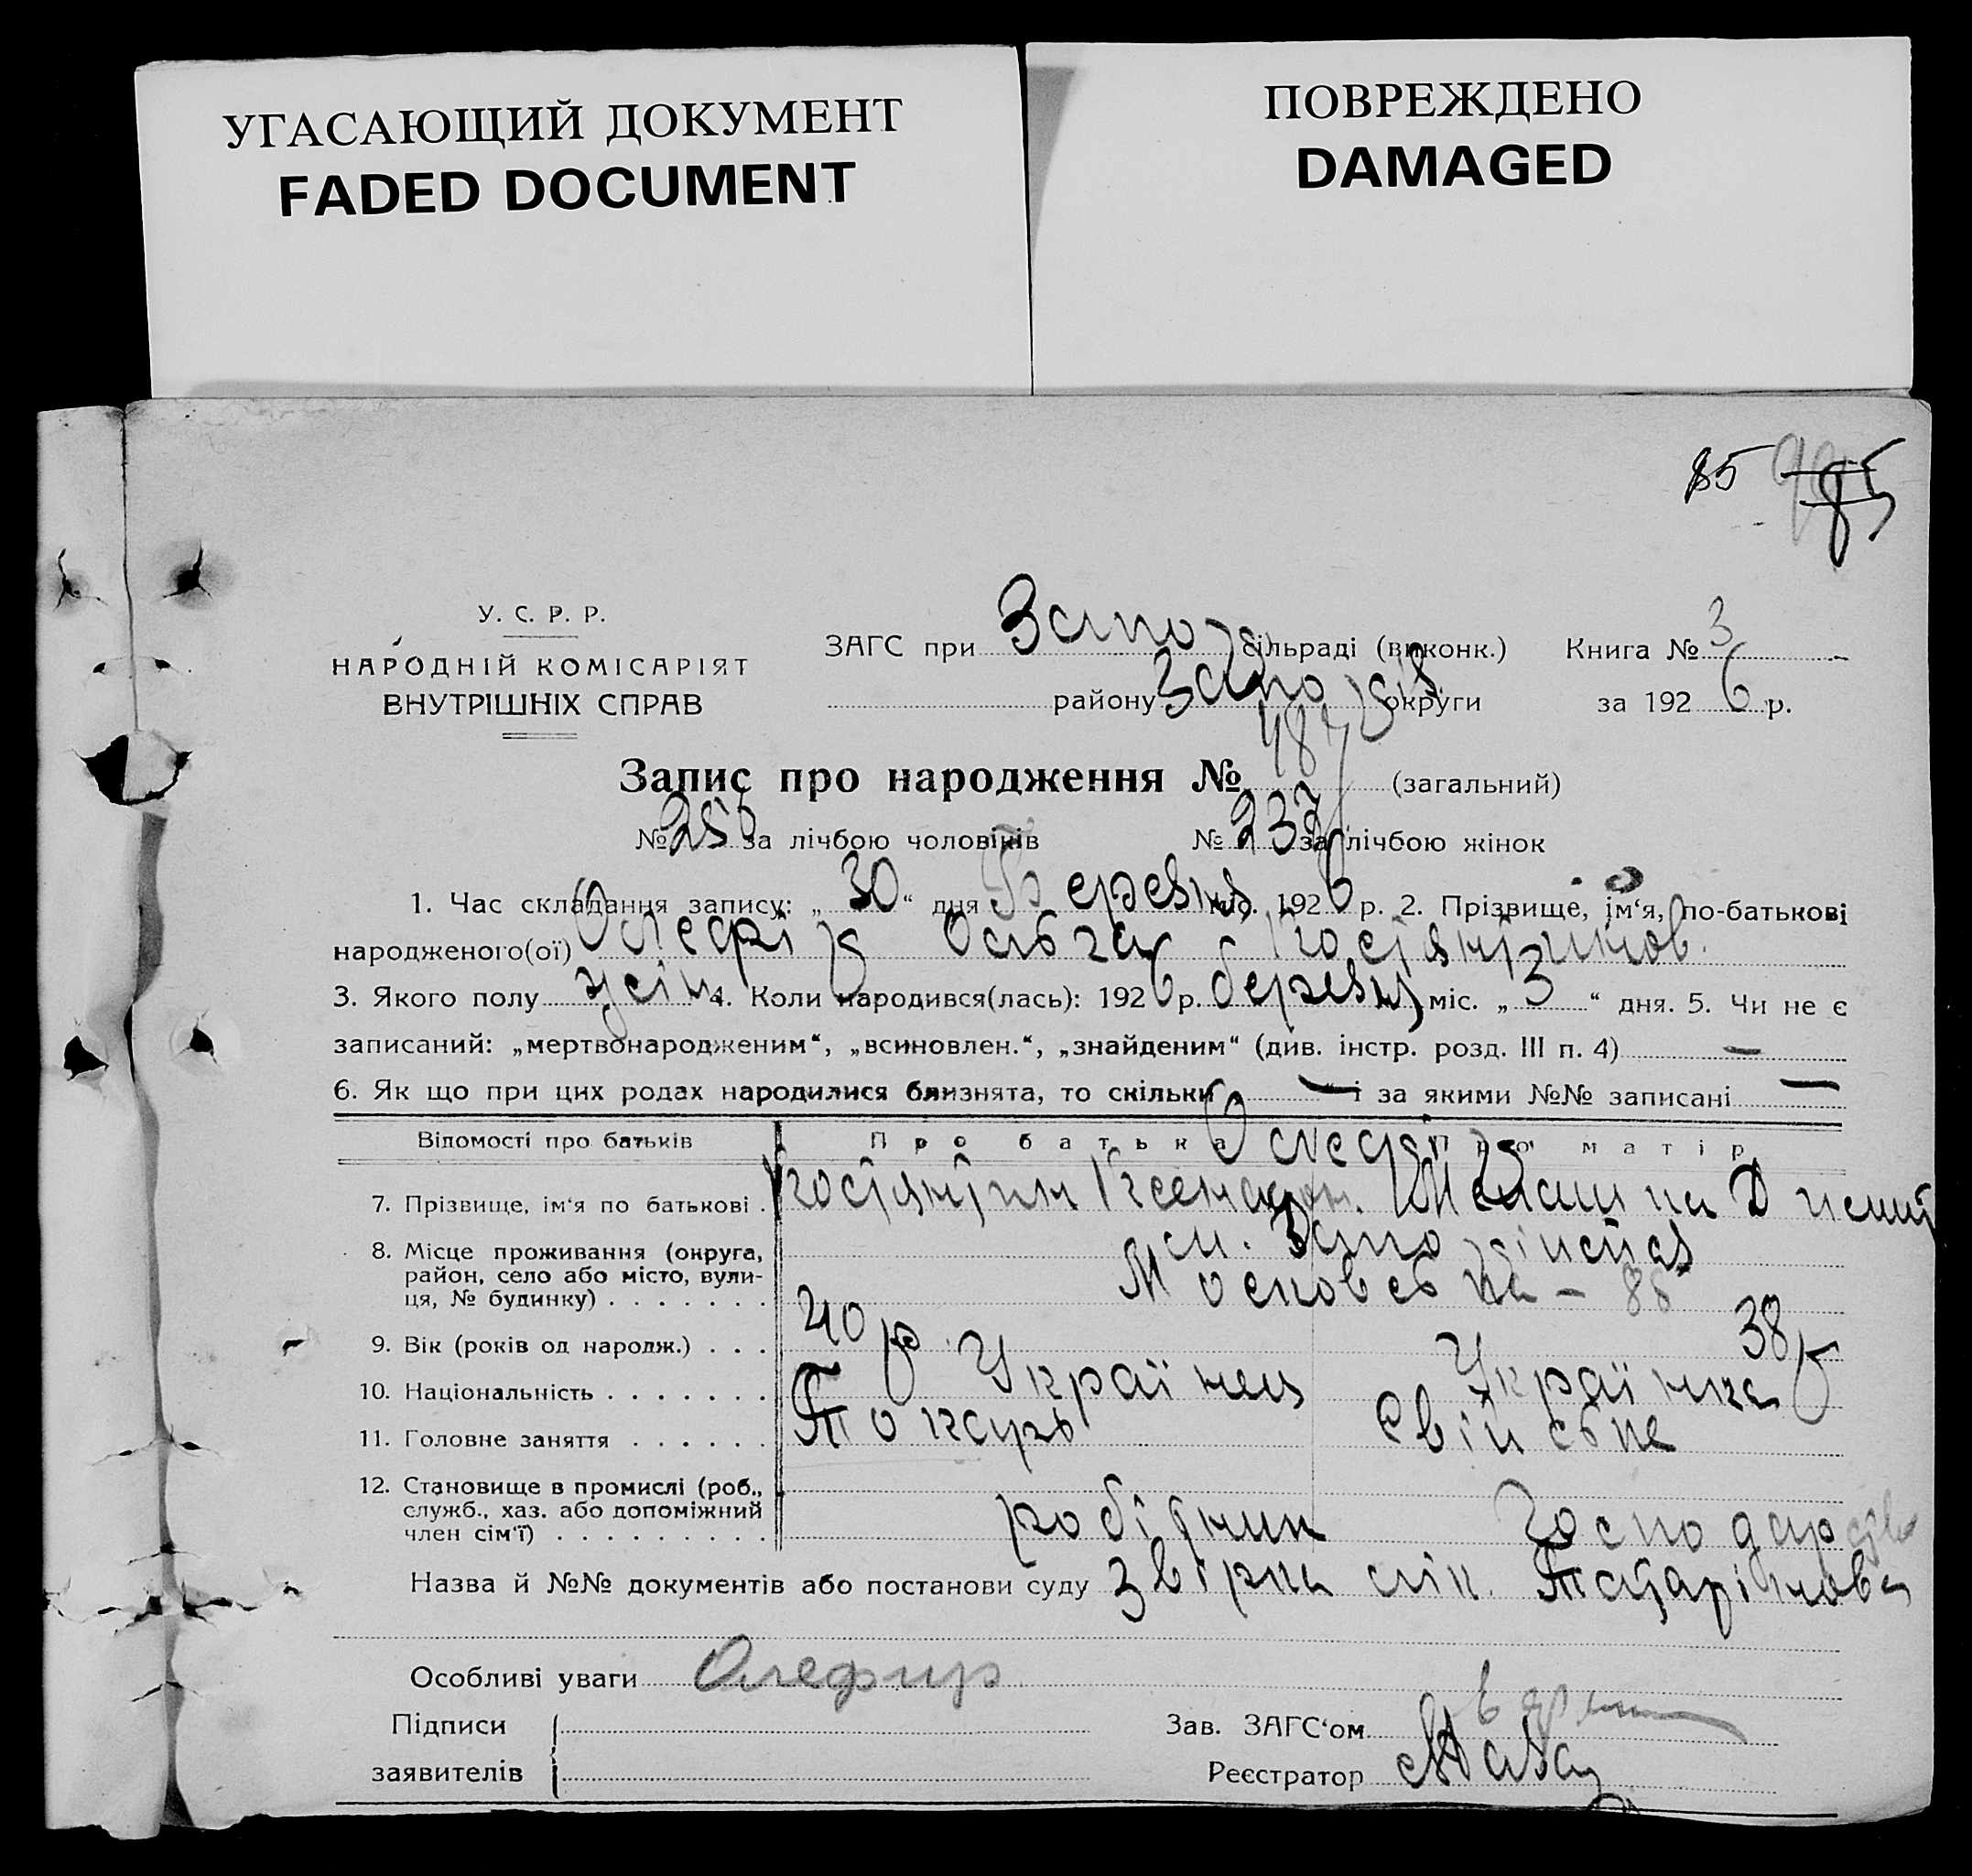 УГАСАЮЩИЙ ДОКУМЕНТ
FADED DOCUMENT
ПОВРЕЖДЕНО
DAMAGED
85 85
У. С. Р. Р.
НАРОДНІЙ КОМІСАРІЯТ
ВНУТРІШНІХ СПРАВ
ЗАГС при Запо сільраді (виконк.) Книга № 3
району Запо округи за 1926 р.
Запис про народження № 487 (загальний)
№ 250 за лічбою чоловіків № 237 за лічбою жінок
1. Час складання запису: „30“ дня Березня міс. 1926 р. 2. Прізвище, ім‘я, по-батькові
народженого(ої) Олефір Ольга Костянтинов.
3. Якого полу жін. 4. Коли народився(лась): 1926 р. березня міс. „3“ дня. 5. Чи не є
записаний: „мертвонародженим“, „всиновлен.“, „знайденим“ (див. інстр. розд. III п. 4) —
6. Як що при цих родах народилися близнята, то скільки — і за якими №№ записані —
Відомості про батьків Про батька Про матір
Олефір
7. Прізвище, ім‘я по батькові . Костянтин Ксенофон. Мелашка
8. Місце проживання (округа, м.
район, село або місто, вули-
ця, № будинку) . . . . . . . Московська – 88
9. Вік (років од народж.) . . . 40 р. 38 р
10. Національність . . . . . . . Українец Українка
11. Головне заняття . . . . . . Токарь Свійське
12. Становище в промислі (роб.,
служб., хаз. або допоміжний робітник господарство
член сім‘ї) . . . . . . . . .
Назва й №№ документів або постанови суду звірка лік. Татарінова
Особливі уваги Олефир
Підписи Зав. ЗАГС‘ом
заявителів Реєстратор